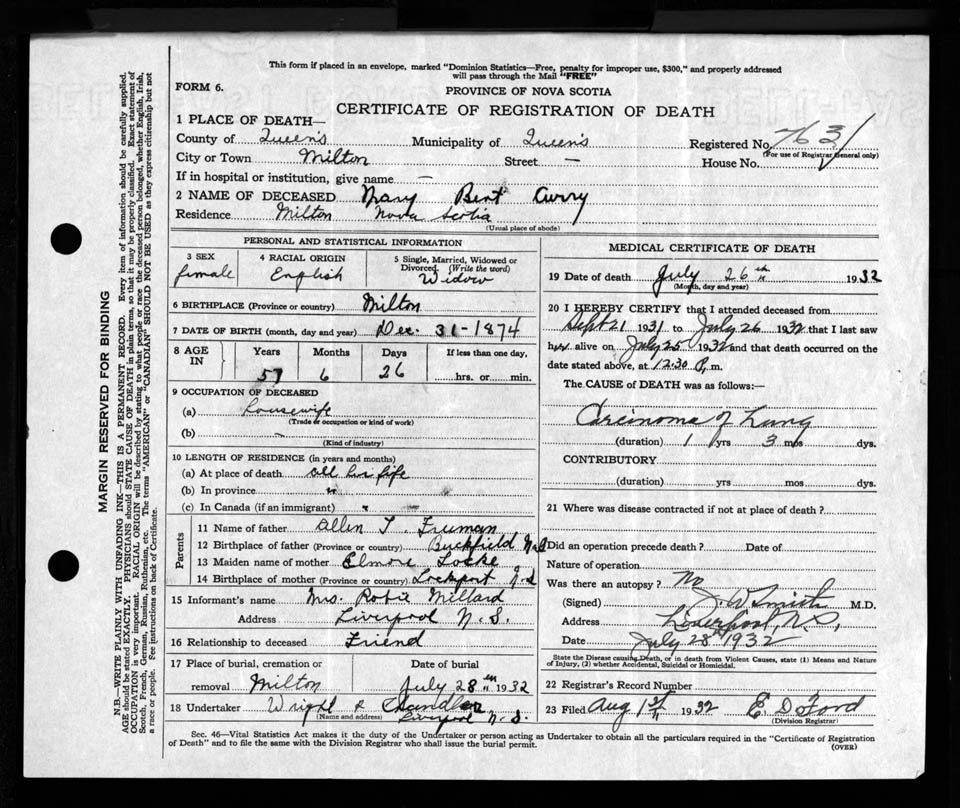 This form if placed in an envelope, marked "Dominion Statistics—Free, penalty for improper use, $300," and properly addressed
will pass through the Mail "FREE"
FORM 6.
PROVINCE OF NOVA SCOTIA
CERTIFICATE OF REGISTRATION OF DEATH
1 PLACE OF DEATH—
County of Queen's Municipality of Queen's Registered No. 763
(For use of Registrar General only)
City or Town Milton Street — House No.
If in hospital or institution, give name —
2 NAME OF DECEASED Mary Bent Curry
Residence Milton Nova Scotia
(Usual place of abode)
PERSONAL AND STATISTICAL INFORMATION
3 SEX female
4 RACIAL ORIGIN English
5 Single, Married, Widowed or
Divorced (Write the word)
Widow
6 BIRTHPLACE (Province or country) Milton
7 DATE OF BIRTH (month, day and year) Dec. 31-1874
8 AGE IN Years Months Days If less than one day,
57 6 26 hrs. or min.
9 OCCUPATION OF DECEASED
(a) housewife
(Trade or occupation or kind of work)
(b) —
(Kind of industry)
10 LENGTH OF RESIDENCE (in years and months)
(a) At place of death all his life
(b) In province "
(c) In Canada (if an immigrant)
Parents
11 Name of father Allen T Fruman
12 Birthplace of father (Province or country) Buckfield N.S
13 Maiden name of mother Elmore Locke
14 Birthplace of mother (Province or country) Lockport N.S
15 Informant's name Mrs. Robie Millard
Address Liverpool N.S.
16 Relationship to deceased Friend
17 Place of burial, cremation or Date of burial
removal Milton July 28th 1932
18 Undertaker Wright & Chandler
(Name and address) Liverpool N.S.
MEDICAL CERTIFICATE OF DEATH
19 Date of death July 26th 1932
(Month, day and year)
20 I HEREBY CERTIFY that I attended deceased from
Sept 21 1931 to July 26 1932 that I last saw
her alive on July 25 1932 and that death occurred on the
date stated above, at 12.30 P. m.
The CAUSE of DEATH was as follows:—
Carcinoma of Lung
(duration) 1 yrs 3 mos dys.
CONTRIBUTORY
(duration) yrs mos dys.
21 Where was disease contracted if not at place of death?
Did an operation precede death? Date of
Nature of operation
Was there an autopsy? No
(Signed) J. W Smith M.D.
Address Liverpool, N.S,
Date July 28th 1932
State the Disease causing Death, or in death from Violent Causes, state (1) Means and Nature
of Injury, (2) whether Accidental, Suicidal or Homicidal.
22 Registrar's Record Number
23 Filed Aug 1st 1932 E. D Ford
(Division Registrar)
Sec. 46—Vital Statistics Act makes it the duty of the Undertaker or person acting as Undertaker to obtain all the particulars required in the "Certificate of Registration
of Death" and to file the same with the Division Registrar who shall issue the burial permit.
(OVER)
MARGIN RESERVED FOR BINDING
N.B.—WRITE PLAINLY WITH UNFADING INK—THIS IS A PERMANENT RECORD. Every item of information should be carefully supplied.
AGE should be stated EXACTLY. PHYSICIANS should STATE CAUSE OF DEATH in plain terms, so that it may be properly classified. Exact statement of
OCCUPATION is very important. RACIAL ORIGIN will be described by stating to what people or race the deceased person belonged, whether English, Irish,
Scotch, French, German, Russian, Ruthenian, etc. The terms "AMERICAN" or "CANADIAN" SHOULD NOT BE USED as they express citizenship but not
a race or people. See instructions on back of Certificate.